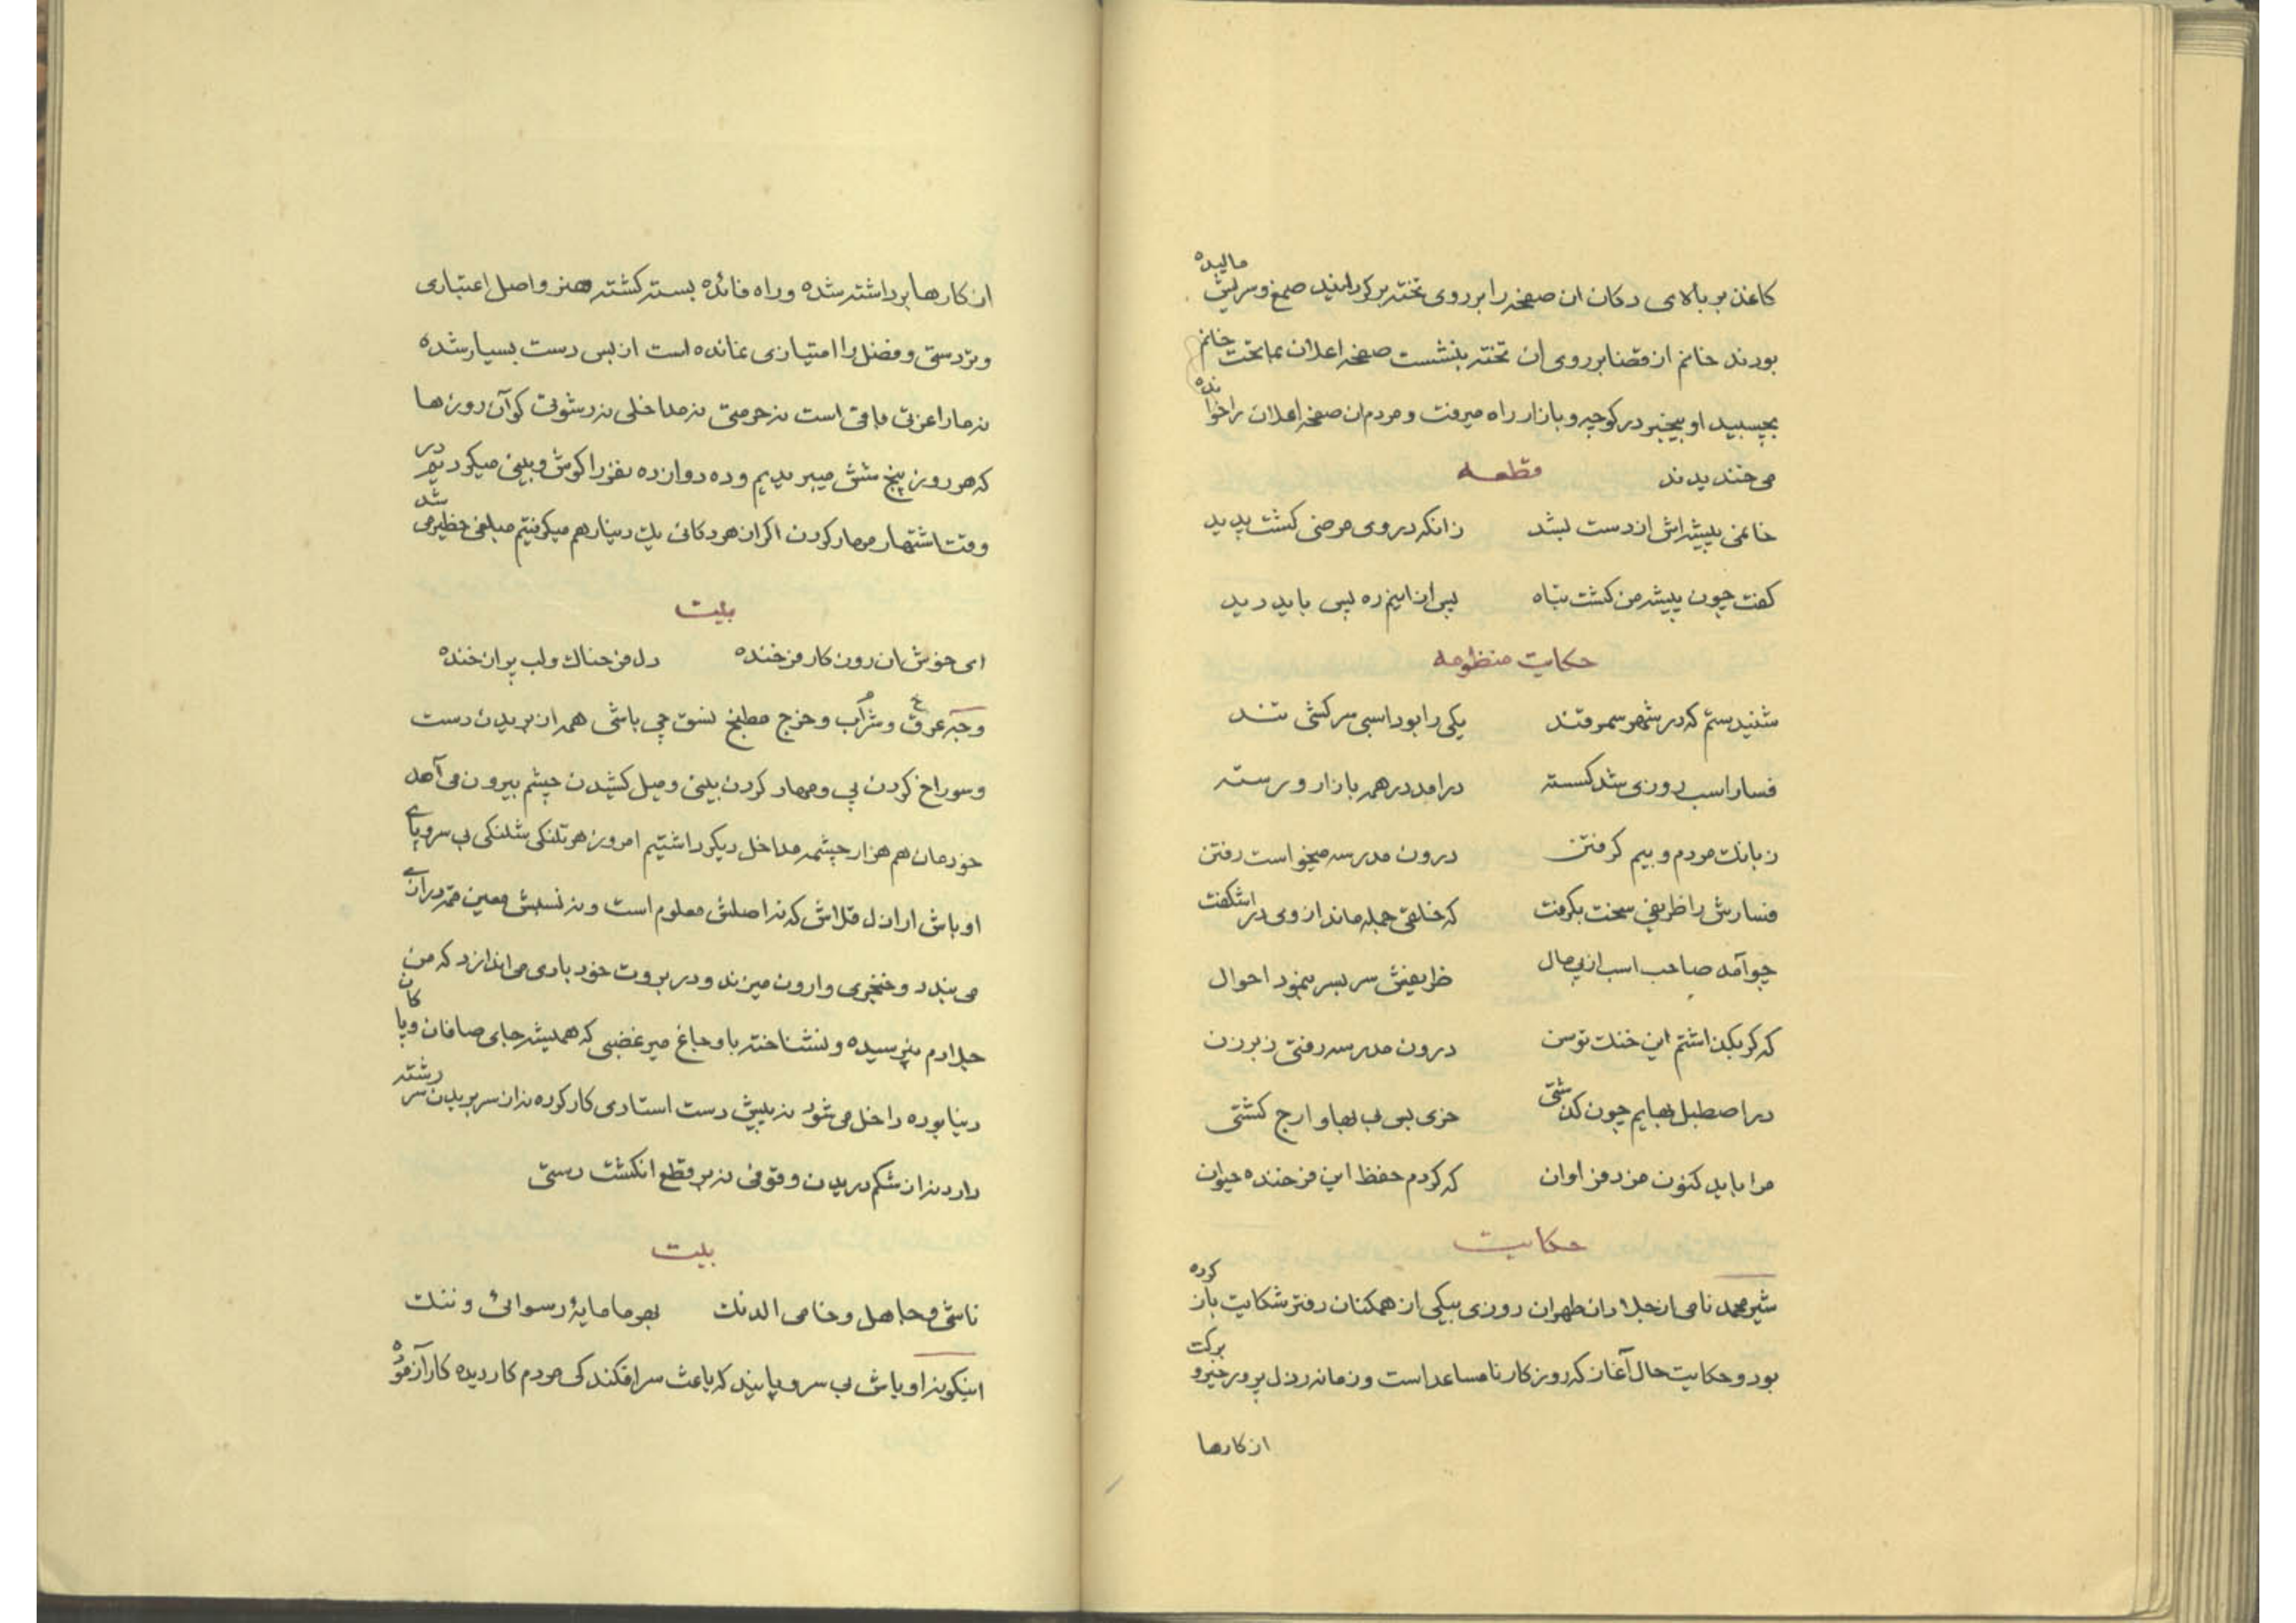 کاغذ بر بالای دکان ان صفحه را بر روی تخته برکردانید صمغ و سریش مالیده
بودند خانم از قضا بر روی ان تخته بنشست صفحه اعلان بماتحت خانم
بچسبید او بیخبر در کوچه و بازار راه میرفت و مردم ان صفحه اعلان را خوانده
می خندیدند
قطعه
خانمی پیشه اش از دست بشد زانکه در وی مرضی کشت پدید
کفت چون پیشه من کشت تباه پس از اینم ره پس باید دید
حکایت منظومه
شنیدستم که در شهر سمرقند یکی را بود اسبی سرکش تند
فسار اسب روزی شد کسسته درامد در همه بازار و رسته
ز بانک مردم و بیم کرفتن درون مدرسه میخواست رفتن
فسارش را ظریفی سخت بکرفت که خلقی جمله ماند از وی در اشکفت
چو آمد صاحب اسب از پی مال ظریفش سربسر بنمود احوال
که کر بکذاشتم این خنک توسن درون مدرسه رفتی ز برزن
در اصطبل بهایم چون کذشتی خری بس بی بها و ارج کشتی
مرا باید کنون مزد فراوان که کردم حفظ این فرخنده حیوان
حکایت
شیر محمد نامی از جلادان طهران روزی بیکی از همکنان دفتر شکایت باز کرده
بود و حکایت حال آغاز که روزکار نامساعد است و زمانه رذل پرور خیر و برکت
از کارها
از کارها برداشته شده و راه فائده بسته کشته هنر و اصل اعتباری
و تردستی و فضل را امتیازی نمانده است از بس دست بسیار شده
نه ما را عزتی باقی است نه حرمتی نه مداخلی نه رشوتی کو آن روزها
که هر روز پنج شش میبریدیم و ده دوازده نفر را کوش و بینی میکردیم در
وقت اشتهار مهار کردن اکر از هر دکانی یک دینار هم میکرفتیم مبلغی خطیر می شد
بیت
ای خوش ان روزکار فرخنده دل فرحناک و لب پر از خنده
وجه عرق و شراب و خرج مطبخ نسق چی باشی همه از بریدن دست
و سوراخ کردن پی و مهار کردن بینی و میل کشیدن چشم بیرون می آمد
خودمان هم هزار چشمه مداخل دیکر داشتیم امروز هر تلنکی شلنکی بی سروپای
اوباش اراذل قلاش که نه اصلش معلوم است و نه نسلش معین
می بندد و خنجری وارون میزند و در بروت خود بادی می اندازد که من
جلادم نپرسیده و نشناخته باوجاغ میرغضبی که همیشه جای صافان و پاکان
دنیا بوده داخل می شود نه پیش دست استادی کار کرده نه از سر بریدن سر رشته
دارد نه از شکم دریدن وقوفی نه بر قطع انکشت دستی
بیت
ناشی و جاهل و خامی الدنک بهر ما مایهٔ رسوائی و ننک
اینکونه اوباش بی سروپایند که باعث سرافکندکی مردم کاردیده کارآزموده